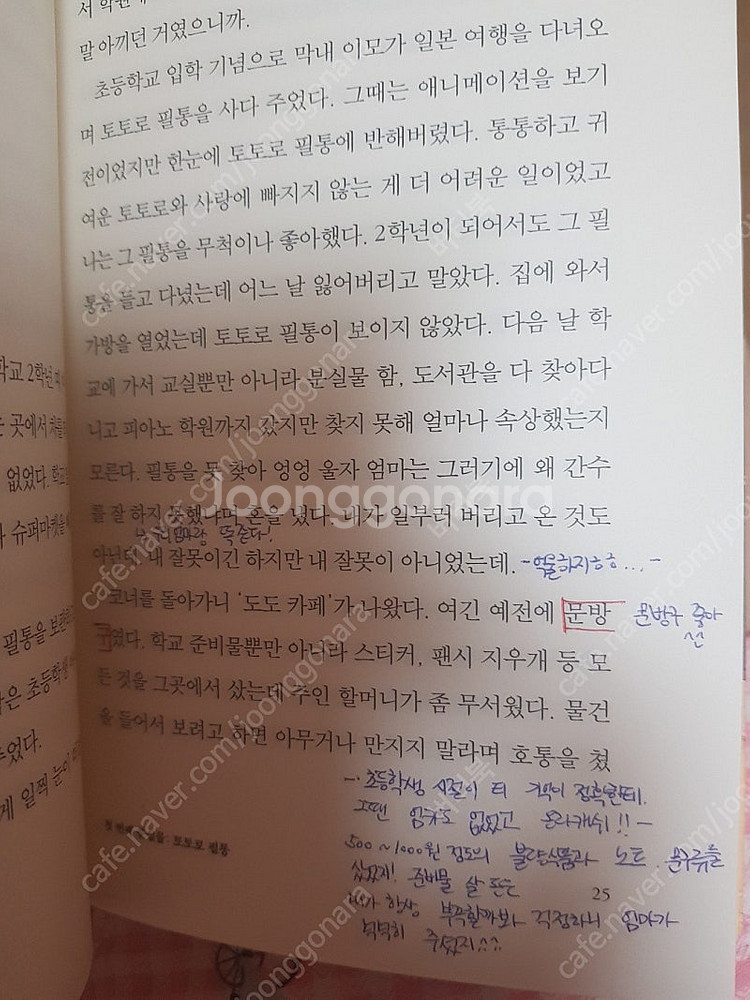 서 학원
말 아끼던 거였으니까.
초등학교 입학 기념으로 막내 이모가 일본 여행을 다녀오
며 토토로 필통을 사다 주었다. 그때는 애니메이션을 보기
전이었지만 한눈에 토토로 필통에 반해버렸다. 통통하고 귀
여운 토토로와 사랑에 빠지지 않는 게 더 어려운 일이었고
나는 그 필통을 무척이나 좋아했다. 2학년이 되어서도 그 필
통을 들고 다녔는데 어느 날 잃어버리고 말았다. 집에 와서
가방을 열었는데 토토로 필통이 보이지 않았다. 다음 날 학
교에 가서 교실뿐만 아니라 분실물 함, 도서관을 다 찾아다
니고 피아노 학원까지 갔지만 찾지 못해 얼마나 속상했는지
모른다. 필통을 못 찾아 엉엉 울자 엄마는 그러기에 왜 간수
를 잘 하지 못했냐며 혼을 냈다. 내가 일부러 버리고 온 것도
똑같다!
아닌데. 내 잘못이긴 하지만 내 잘못이 아니었는데. -억울하지ㅎㅎ...-
코너를 돌아가니 '도도 카페'가 나왔다. 여긴 예전에 문방 문방구 좋아
^^
구였다. 학교 준비물뿐만 아니라 스티커, 팬시 지우개 등 모
든 것을 그곳에서 샀는데 주인 할머니가 좀 무서웠다. 물건
을 들어서 보려고 하면 아무거나 만지지 말라며 호통을 쳤
-. 초등학생 시절이 더 기억이
그땐 없었고 온라캐쉬!! -
500~1000원 정도의 불량식품과 노트, 문구류를
샀었지! 준비물 살 돈은
내가 항상 부족할까봐 걱정하니 엄마가
넉넉히 주셨지^^
토토로 필통
25
학교 2학년
곳에서 처음
없었다. 학교
슈퍼마켓을
필통을 보
은 초등학생
주었다.
게 일찍 눈이
Joonggonara
cafe.naver.com/joonggonara